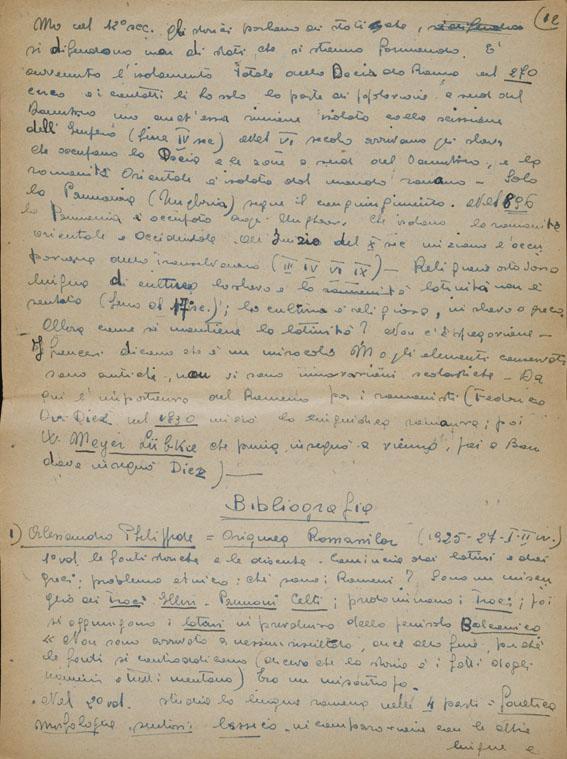 (12
Ma nel 12° sec. gli storici parlano di
si difendono ma di stati che si stanno formando. È
avvenuto l'isolamento totale della Dacia da Roma nel 270
circa e i contatti li ha solo la parte di popolazione a sud del
Danubio ma anch'essa rimane isolata colla scissione
dell'Impero (fine IV sec) Nel VI secolo arrivano gli slavi
che occupano la Dacia e le zone a sud del Danubio, e la
romanità Orientale è isolata dal mondo romano - Solo
la Pannonia (Ungheria) segue il congiungimento. Nel 896
la Pannonia è occupata dagli Ungheri che isolano la romanità
orientale e Occidentale. All'inizio del X sec iniziano l'occu
pazione della transilvania (III IV VI IX) - Religione ortodossa
lingua di cultura lo slavo e la latinità non è
sentita (fino al 17° sec.); la cultura è religiosa, in slavo o greco.
Allora come si mantiene la latinità? Non c'è spiegazione -
I francesi dicono che è un miracolo. Ma gli elementi conservati
sono antichi, non vi sono innovazioni scolastiche - Da
qui l'importanza del Rumeno per i romanisti (Federico
Diez nel 1830 iniziò la linguistica romanza; poi
W. Meyer Lübke che prima insegnò a Vienna, poi a Bon
dove insegnò Diez)
Bibliografia
1) Alessandro Philippide = Originea Romanilor (1925-27-I-II vv.)
1° vol. le fonti storiche e le discute. Comincia dai latini e dai
greci; problema etnico: chi sono i Rumeni? Sono un miscu
glio di Traci Illiri - Pannoni Celti; predominano i Traci; poi
si aggiungono i latini in prevalenza della penisola Balcanica
« Non sono arrivato a nessun risultato, dice alla fine, perché
le fonti si contraddicono (diceva che la storia è i fatti degli
uomini e tutti mentono) Era un misantropo.
Nel 2° vol. studia la lingua rumena nelle 4 parti = fonetica
morfologia, sintassi lessico. in comparazione con le altre
lingue e